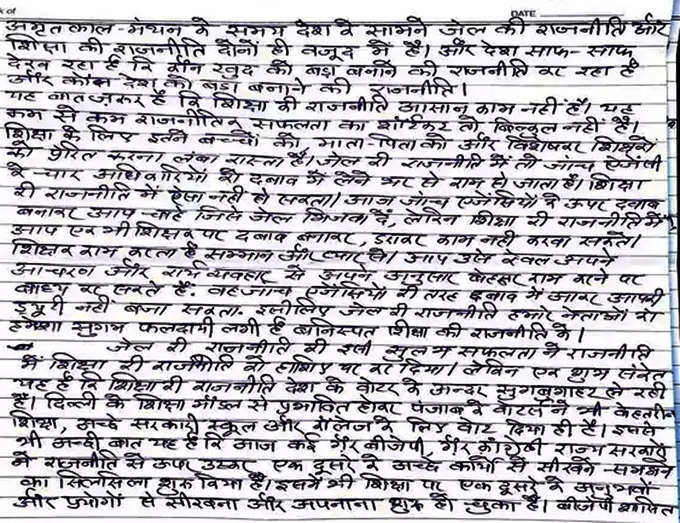 DATE
अमृत काल-मंथन के समय देश के सामने जेल की राजनीति और
शिक्षा की राजनीति दोनों ही वजूद में हैं। और देश साफ-साफ
देख रहा है कि कौन खुद को बड़ा बनाने की राजनीति कर रहा है
और कौन देश को बड़ा बनाने की राजनीति।
यह बात ज़रूर है कि शिक्षा की राजनीति आसान काम नहीं है। यह
कम से कम राजनीतिक सफलता का शॉर्टकट तो बिल्कुल नहीं है।
शिक्षा के लिए इतने बच्चों को, माता-पिता को और विशेषकर शिक्षकों
को प्रेरित करना लंबा रास्ता है। जेल की राजनीति में तो जांच एजेंसी
के चार अधिकारियों को दबाव में लेने भर से काम हो जाता है। शिक्षा
की राजनीति में ऐसा नहीं हो सकता। आज जांच एजेंसियों के ऊपर दबाव
बनाकर आप चाहे जिसे जेल भिजवा दें, लेकिन शिक्षा की राजनीति में
आप एक भी शिक्षक पर दबाव बनाकर, डराकर काम नहीं करवा सकते।
शिक्षक काम करता है सम्मान और प्यार से। आप उसे केवल अपने
आचरण और कार्य व्यवहार से अपने अनुसार बेहतर काम करने पर
बाध्य कर सकते हैं. वह जांच एजेंसियों की तरह दबाव में आकर आपकी
ड्यूटी नहीं बजा सकता. इसीलिए जेल की राजनीति हमारे नेताओं को
हमेशा सुगम फलदायी लगी है बनिस्पत शिक्षा की राजनीति के।
जेल की राजनीति की इसी सुलभ सफलता ने राजनीति
में शिक्षा की राजनीति को हाशिए पर कर दिया। लेकिन एक शुभ संकेत
यह है कि शिक्षा की राजनीति देश के वोटर के अन्दर सुगबुगाहट ले रही
है। दिल्ली के शिक्षा मॉडल से प्रभावित होकर पंजाब के वोटर्स ने भी बेहतरीन
शिक्षा, अच्छे सरकारी स्कूल और कॉलेज के लिए वोट दिया ही है। इससे
भी अच्छी बात यह है कि आज कई गैर बीजेपी, गैर कांग्रेसी राज्य सरकारों
ने राजनीति से ऊपर उठकर एक दूसरे के अच्छे कार्यों से सीखने-समझने
का सिलसिला शुरू किया है। इसमें भी शिक्षा पर एक दूसरे के अनुभवों
और प्रयोगों से सीखना और अपनाना शुरू हो चुका है। बीजेपी शासित